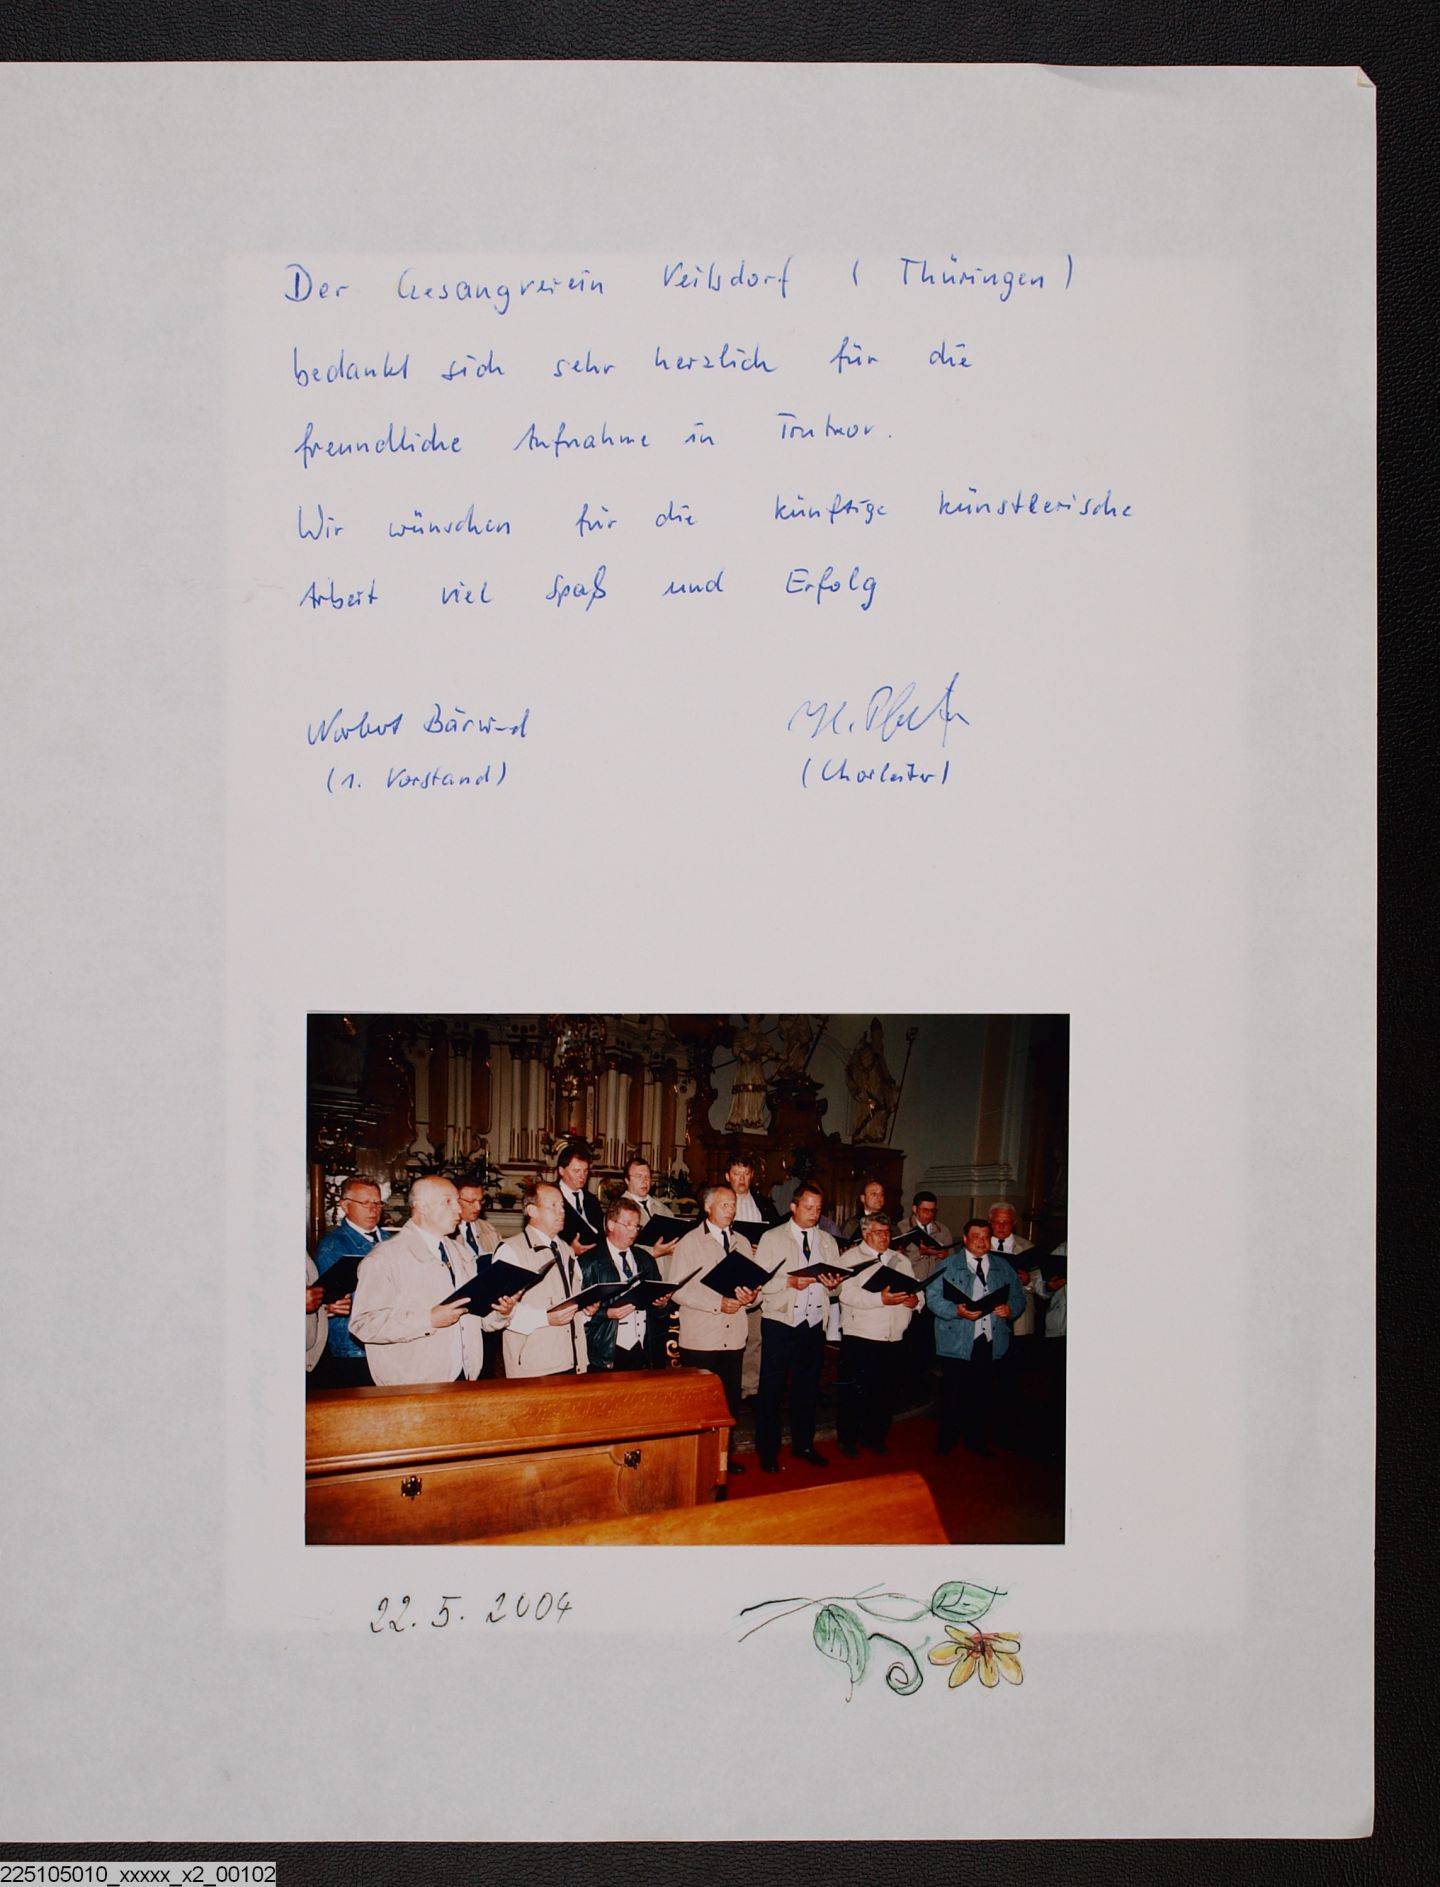 Der Gesangverein Veilsdorf ( Thüringen )
bedankt sich sehr herzlich für die
freundliche Aufnahme in Trutnov.
Wir wünschen für die künftige künstlerische
Arbeit viel Spaß und Erfolg
Norbert
(1. Vorstand)
(Chorleiter)
22. 5. 2004
225105010_xxxxx_x2_00102